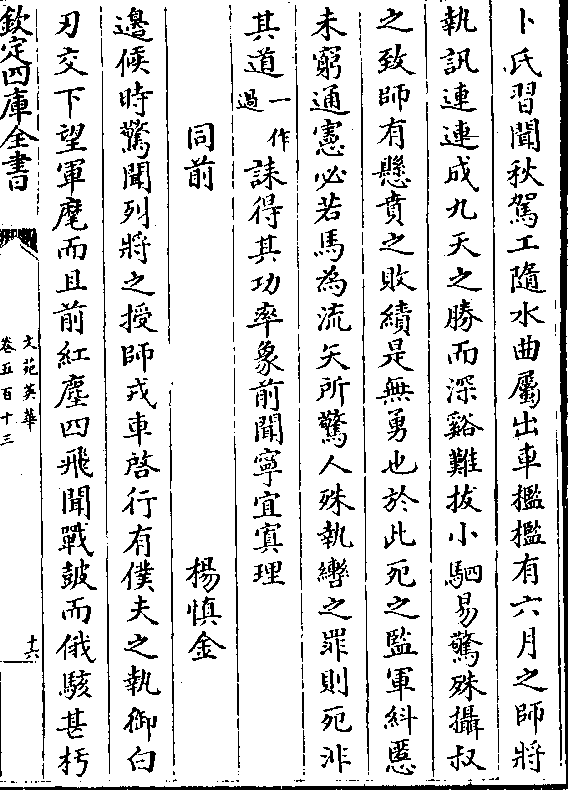 卜氏習聞秋駕工隨水曲屬出車檻檻有六月之師將
執訊連連成九天之勝而深谿難拔小駟易驚殊攝叔
之致師有懸賁之敗績是無勇也於此死之監軍糾慝
未窮通憲必若馬為流矢所驚人殊執轡之罪則死非
其道一作過誅得其功率象前聞寧宜寘理
同前 楊慎金
邊候時驚聞列將之授師戎車啓行有僕夫之執御白
刃交下望軍麾而且前紅塵四飛聞戰鼓而俄駭甚朽
欽定四庫全書
文苑英華
卷五百十三
十六